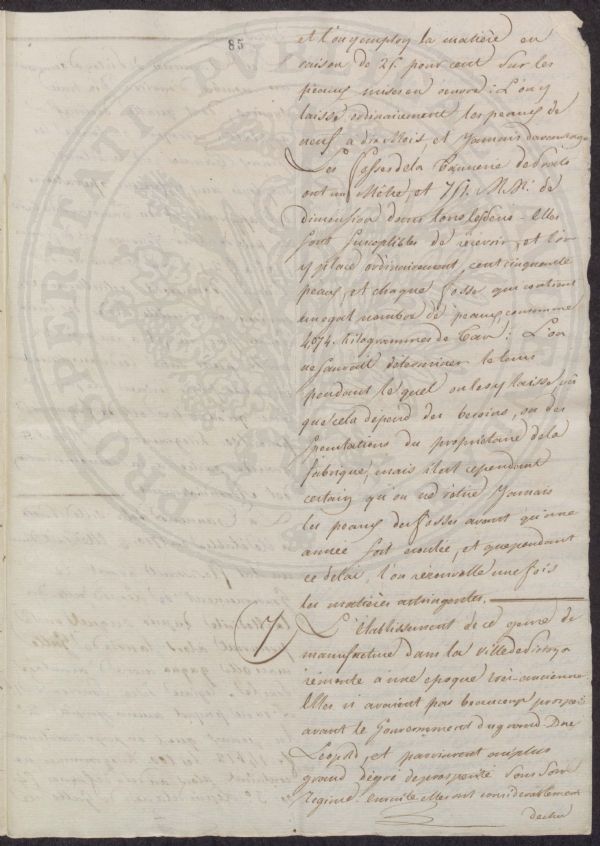 85
et l'on y emploij la matiére en
raison de 25. pour cent sur les
peaux mises en oeuvre: L'on y
laisse ordinairement les peaux de
neuf, a dix Mois, et jamais davantage
Les Fosses de la Tannerie de
ont un Métre, et 751. M.M. de
dimension dans tous les sens. Elles
sont susceptibles de récevoir, et l'on
y place ordinairement, cent cinquante
peaux, et chaque Fosse qui contient
un egal nombre de peaux, consomme
4,074. Kilogrammes de Tan: L'on
ne sauroit déterminer le tems
pendant le quel on les y laisse, vû
que cela dépend des besoins, ou des
spéculations du propriétaire de la
fabrique, mais il est cependant
certain qu'on ne rétire jamais
les peaux des Fosses avant qu'une
année soit ecoulée, et que pendant
ce délai, l'on rénouvelle une fois
les matiéres astringentes.
7) L'Etablissement de ce genre de
manufacture dans la ville de
rémonte a une epoque trés-ancienne
Elles n'avaient pas beaucoup prosperé
avant le Gouvernement du grand-Duc
Léopold, et parvinrent au plus
grand dégré de prosperité sous son
regime. ensuite elles ont considerablement
dechu
PROSPERITATI PVBL